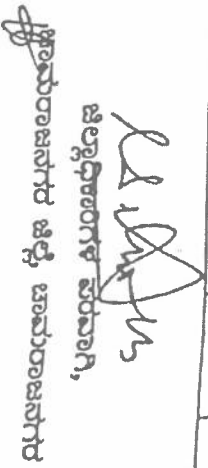 ಜಿಲ್ಲಾಧಿಕಾರಿಗಳ ಪರವಾಗಿ,
ಚಾಮರಾಜನಗರ ಜಿಲ್ಲೆ, ಚಾಮರಾಜನಗರ